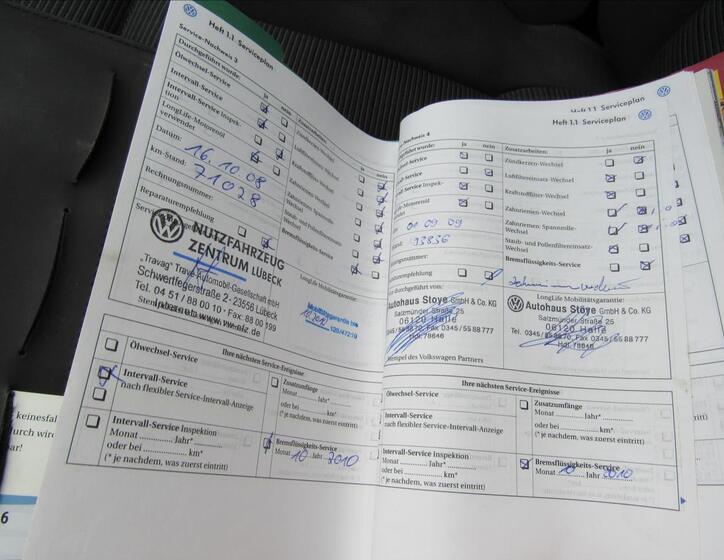 Heft 1.1 Serviceplan
Service-Nachweis 3
Durchgeführt wurde: ja nein
Ölwechsel-Service
Intervall-Service
Intervall-Service Inspek-
tion
LongLife-Motorenöl
verwendet
Datum: 16.10.08
km-Stand: 71028
Rechnungsnummer:
Reparaturempfehlung
Zusatzarbeiten: ja nein
Zündkerzen-Wechsel
Zahnriemen-Wechsel
Zahnriemen, Spannrolle-
Wechsel
Staub- und Pollenfiltereinsatz-
Wechsel
Bremsflüssigkeits-Service
NUTZFAHRZEUG
ZENTRUM LÜBECK
„Travag" Trave Automobil-Gesellschaft mbH
Schwertfegerstraße 2 · 23556 Lübeck
Tel. 04 51 / 88 00 10 · Fax 88 00 199
LongLife Mobilitätsgarantie:
Mobilitätsgarantie bis
Ihre nächsten Service-Ereignisse
Ölwechsel-Service
Intervall-Service
nach flexibler Service-Intervall-Anzeige
Intervall-Service Inspektion
Monat Jahr*
oder bei km*
(* je nachdem, was zuerst eintritt)
Zusatzumfänge
Monat Jahr*
oder bei km*
(* je nachdem, was zuerst eintritt)
Bremsflüssigkeits-Service
Monat 10 Jahr 2010
Heft 1.1 Serviceplan
Heft 1.1 Serviceplan
Nachweis 4
ja nein
Zusatzarbeiten: ja nein
Zündkerzen-Wechsel
Luftfiltereinsatz-Wechsel
Kraftstofffilter-Wechsel
Zahnriemen-Wechsel
Zahnriemen, Spannrolle-
Wechsel
Staub- und Pollenfiltereinsatz-
Wechsel
Bremsflüssigkeits-Service
01 09 09
93836
Autohaus Stoye GmbH & Co. KG
Salzmünder Straße 25
06120 Halle
Tel. 0345/55 88 70, Fax 0345/55 88 777
Hdl. 78646
Stempel des Volkswagen Partners
LongLife Mobilitätsgarantie:
Autohaus Stoye GmbH & Co. KG
Salzmünder Straße 25
06120 Halle
Tel. 0345/55 88 70, Fax 0345/55 88 777
Hdl. 78646
Ihre nächsten Service-Ereignisse
Ölwechsel-Service
Intervall-Service
nach flexibler Service-Intervall-Anzeige
Intervall-Service Inspektion
Monat Jahr*
oder bei km*
(* je nachdem, was zuerst eintritt)
Zusatzumfänge
Monat Jahr*
oder bei km*
(* je nachdem, was zuerst eintritt)
Bremsflüssigkeits-Service
Monat 10 Jahr 2010
keinesfal
durch wird
bar!
6